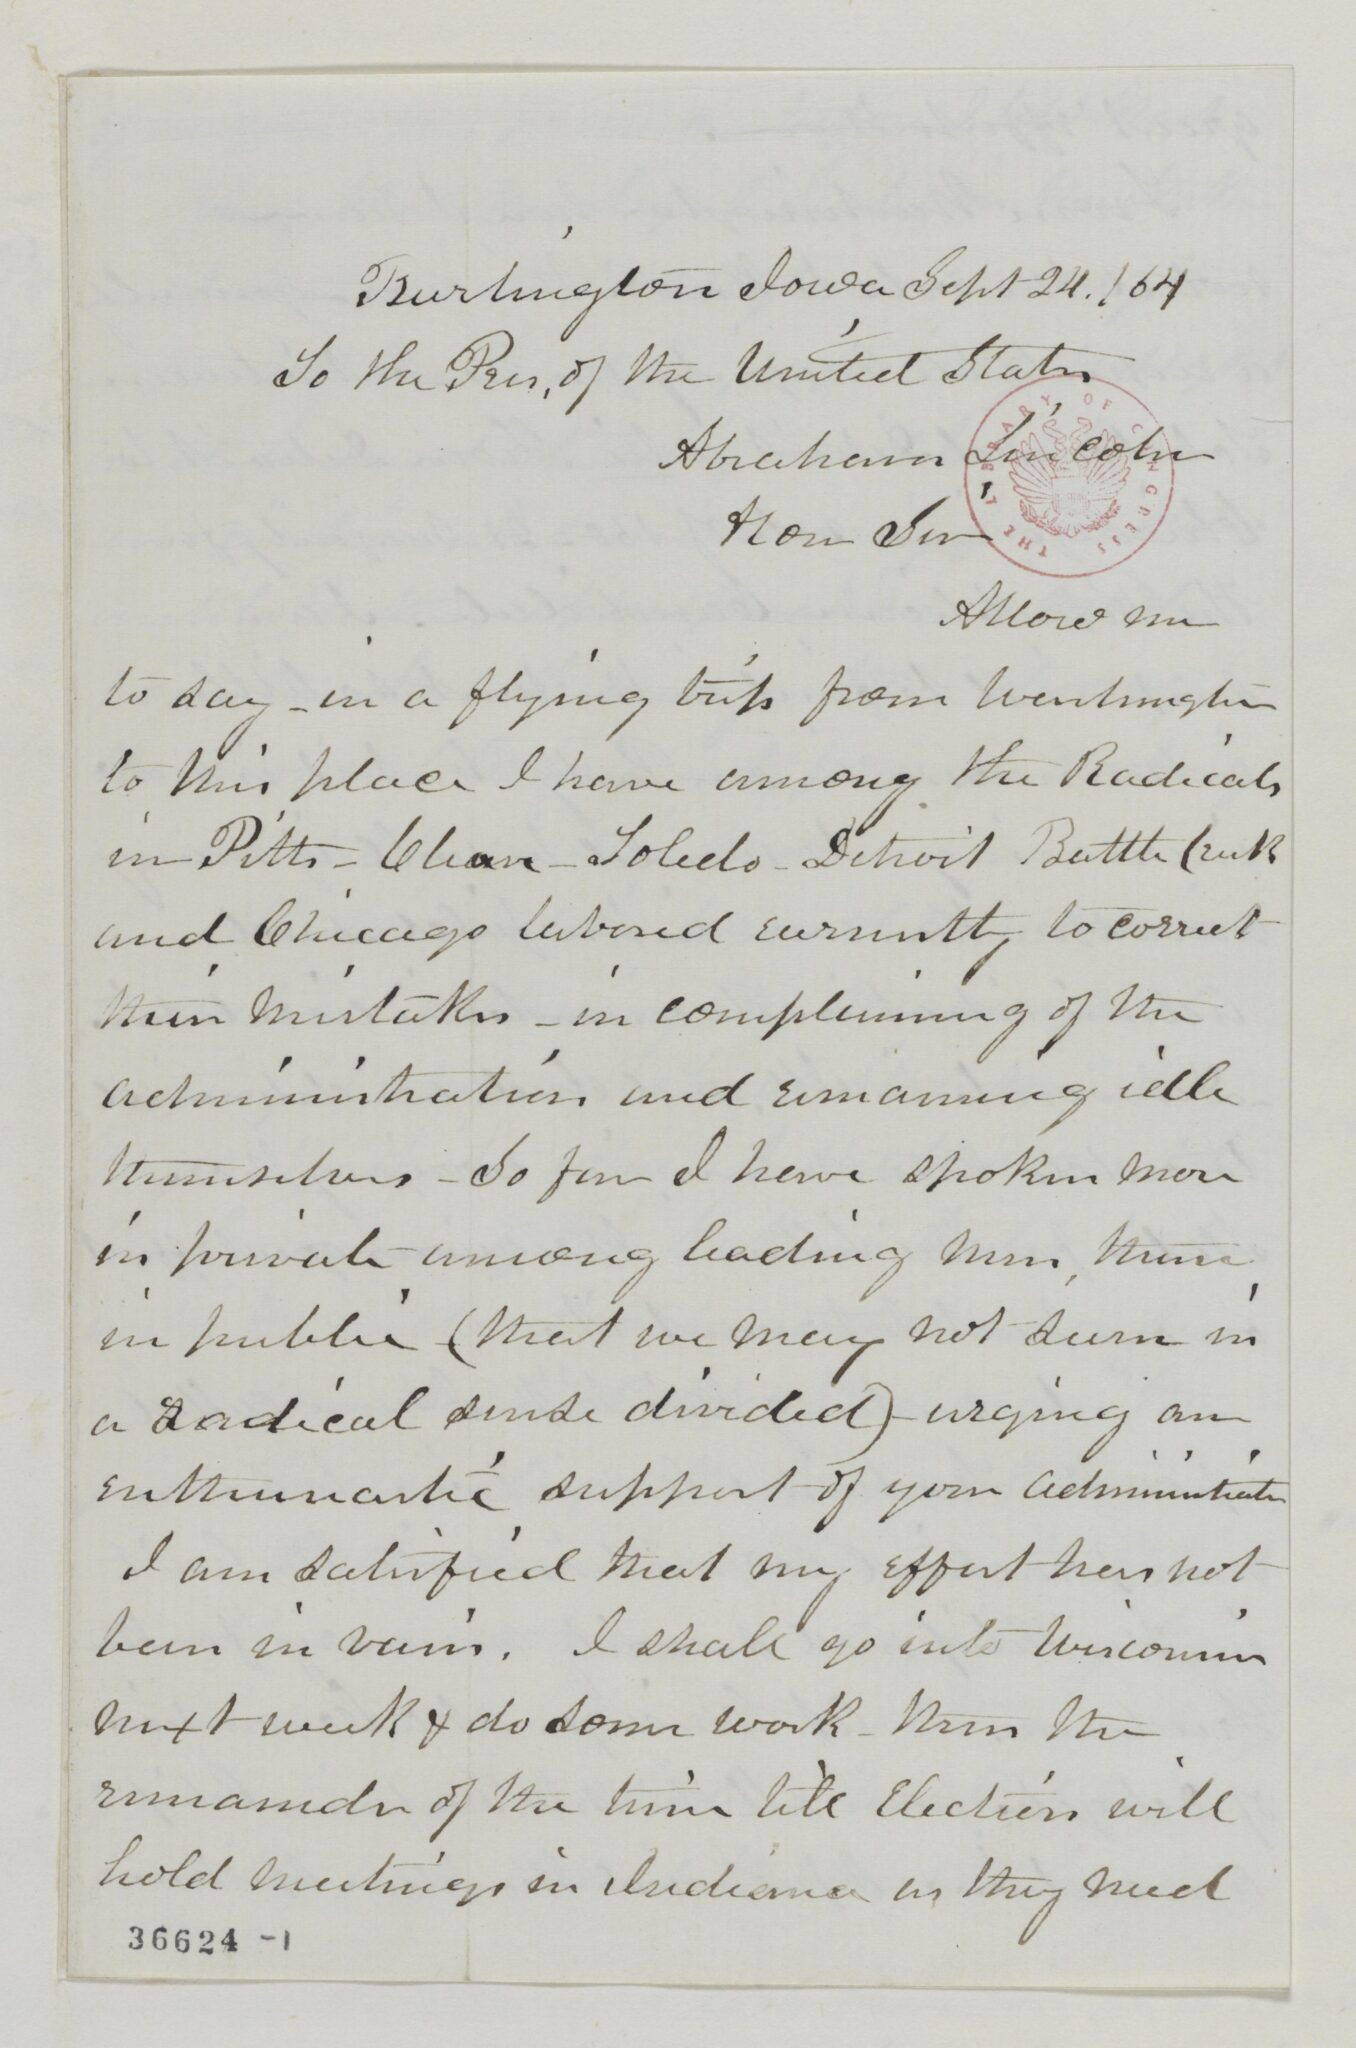 Burlington Iowa Sept 24. /64
To the Pres, of the United States
Abraham Lincoln
THE LIBRARY OF CONGRESS
Hon Sir
Allow me
to say - in a flying trip from Washington
to this place I have among the Radicals
in Pitts - Cleav - Toledo - Detroit Battle Creek
and Chicago labored earnestly to correct
their mistakes - in complaining of the
administration and remaining idle
themselves - So far I have spoken more
in private among leading men, than
in public (that we may not seem in
a radical sense divided) - urging an
enthusiastic support of your administration
I am satisfied that my effort has not
been in vain. I shall go into Wisconsin
next week & do some work - then the
remainder of the time till Election will
hold meetings in Indiana as they need
36624 -1